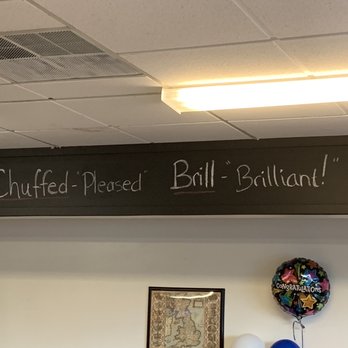 Chuffed - "Pleased" Brill - "Brilliant!"
CONGRATULATIONS